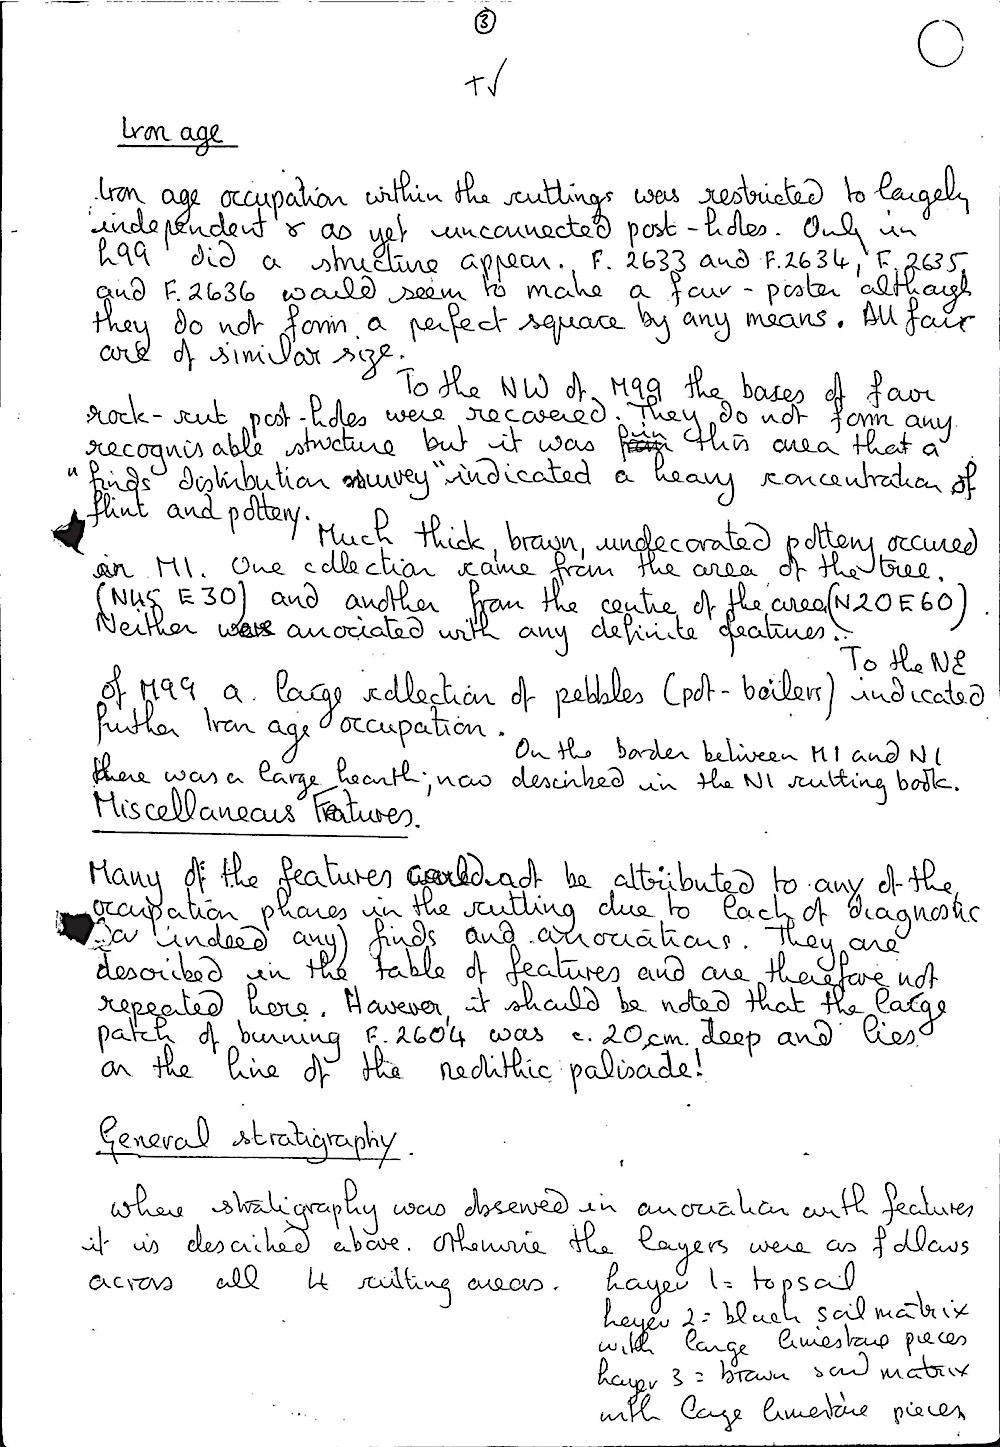 3
+✓
Iron age
Iron age occupation within the cuttings was restricted to largely
independent & as yet unconnected post-holes. Only in
L99 did a structure appear. F. 2633 and F.2634, F. 2635,
and F.2636 would seem to make a four-poster although
they do not form a perfect square by any means. All four
are of similar size.
To the NW of M99 the bases of four
rock-cut post-holes were recovered. They do not form any
recognisable structure but it was in this area that a
"finds distribution survey" indicated a heavy concentration of
flint and pottery.
Much thick, brown, undecorated pottery occured
in M1. One collection came from the area of the tree.
(N45 E30) and another from the centre of the area (N20E60).
Neither were associated with any definite features.
To the NE
of M99 a large collection of pebbles (pot-boilers) indicated
further Iron age occupation.
On the border between M1 and N1
there was a large hearth; now described in the N1 cutting book.
Miscellaneous Features.
Many of the features could not be attributed to any of the
occupation phases in the cutting due to lack of diagnostic
(or indeed any) finds and associations. They are
described in the table of features and are therefore not
repeated here. However, it should be noted that the large
patch of burning F. 2604 was c. 20cm. deep and lies
on the line of the neolithic palisade!
General stratigraphy.
Where stratigraphy was observed in association with features
it is described above. Otherwise the layers were as follows
across all 4 cutting areas. Layer 1 = topsoil
Layer 2 = black soil matrix
with large limestone pieces
Layer 3 = brown soil matrix
with large limestone pieces